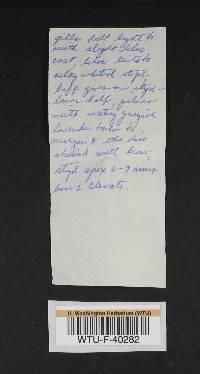 gills dull light br.
with slight lilac
cast, lilac tints to
silky whitish stipe.
buff gones on stipe —
lower half, pileus
with watery grayish
lavender tones to
margin & the disc
shaded with brown,
stipe apex 6-9 mm
base clavate.
U. Washington Herbarium (WTU)
WTU-F-40282